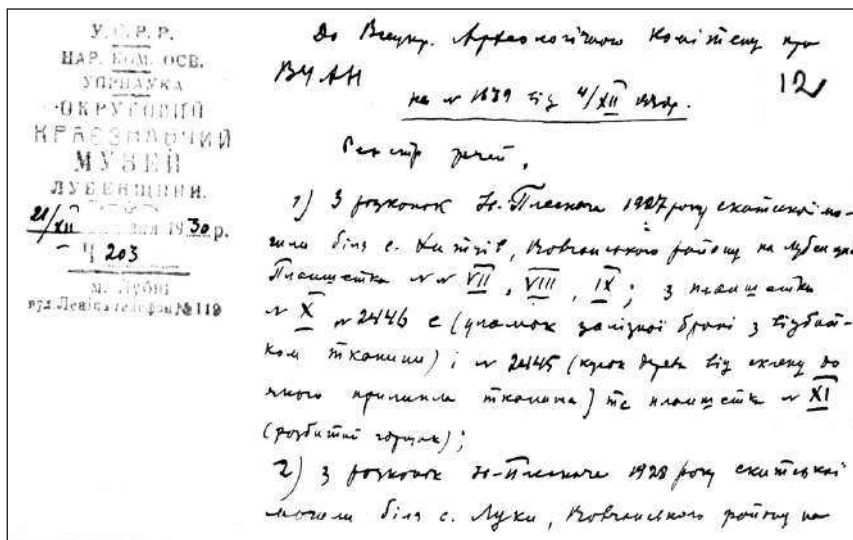 У.С.Р.Р.
НАР. КОМ. ОСВ.
УПРНАУКА
ОКРУГОВИЙ
КРАЄЗНАВЧИЙ
МУЗЕЙ
ЛУБЕНЩИНИ.
21/XII дня 1930 р.
Ч 203
м. Лубні
вул. Леніна телефон № 119
До Всеукр. Археологічного Комітету при
ВУАН
12
на № 1639 від 4/XII
Реєстр речей.
1) З розкопок Ю-Плескача 1927 року скитської мо-
гили біля с. Хитців, Вовчанського району на Лубенщ
Планшетка №№ VII, VIII, IX; з планшетки
№ X № 2446 с (уламок залізної броні з відбит-
ком тканини); і № 2445 (кусок дерева від склепу до
якого прилипла тканина) та планшетка № XI
(розбитий горщик);
2) З розкопок Ю-Плескача 1928 року скитської
могили біля с. Луки, Вовчанського району на